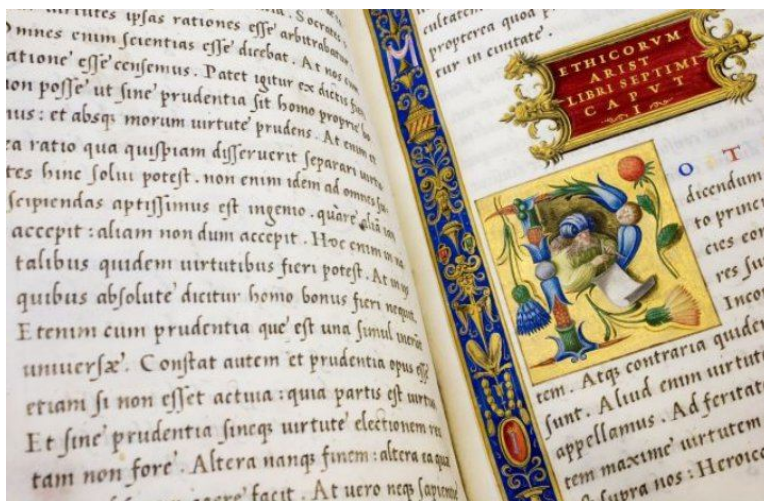 uirtutes ipsas rationes esse arbitrabatur
omnes enim scientias esse dicebat. At nos cum
ratione esse censemus. Patet igitur ex dictis fieri
non posse ut sine prudentia sit homo proprie bo
nus: et absq; morum uirtute prudens. At enim et
ea ratio qua quispiam disseruerit separari uirtu
tes hinc solui potest. non enim idem ad omnes su
scipiendas aptissimus est ingenio. quare aliā iam
accepit: aliam non dum accepit. Hoc enim in na
talibus quidem uirtutibus fieri potest. At in iis
quibus absolute dicitur homo bonus fieri nequit.
Etenim cum prudentia que est una simul inerūt
uniuersæ. Constat autem et prudentia opus esse
etiam si non esset actiua: quia partis est uirtus.
Et sine prudentia sineq; uirtute electionem rec
tam non fore. Altera nanq; finem: altera ea qua
facit. At uero neq; sapientie
propterea quod p
tur in ciuitate.
ETHICORVM
ARIST
LIBRI SEPTIMI
CAPVT
I
O T
dicendum
to princi
cies con
res sun
Incon
tem. Atq; contraria quidem
sunt. Aliud enim uirtute
appellamus. Ad feritate
tem maxime uirtutem
supra nos: Heroica